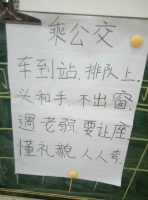 乘公交
车到站，排队上，
头和手，不出窗，
遇老弱，要让座
懂礼貌，人人夸，